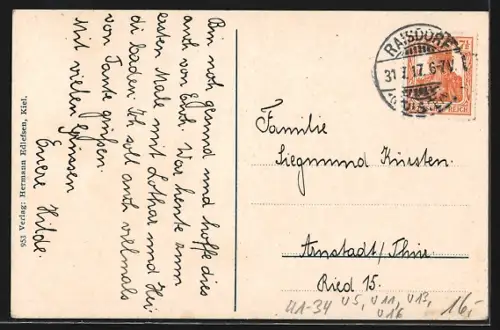 Bin noch gesund und hoffe dies
auch von Euch. War heute zum
ersten Male mit Lothar und Hei
di baden. Ich soll auch vollmals
von Tante grüßen.
Mit vielen Grüssen
Euere Hilde.
953 Verlag: Hermann Edlefsen, Kiel.
RAISDORF
31.7.17. 6-7N.
7½
Familie
Siegmund Kürsten.
Arnstadt/Thür
Ried 15.
41-34 U5, U11, U13,
U16
16,-